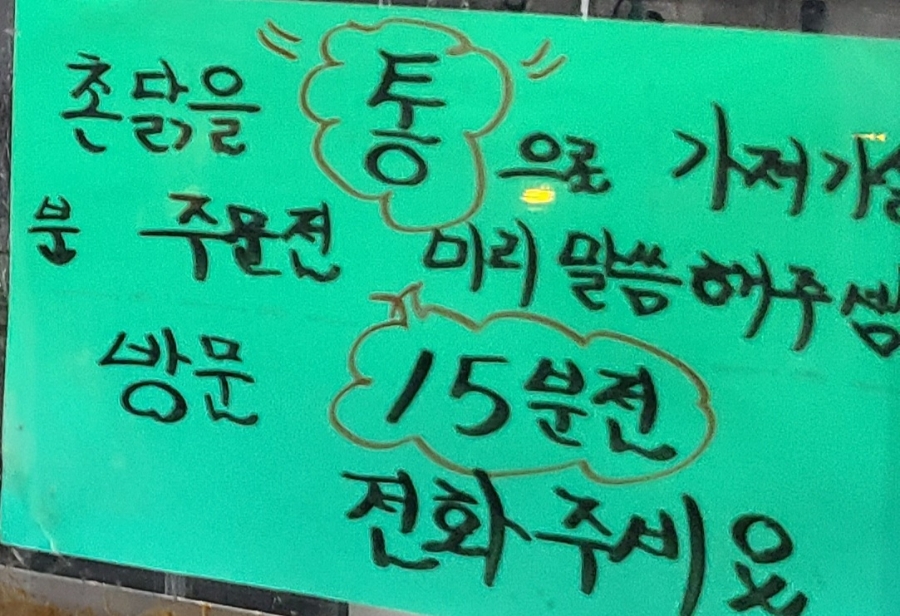 촌닭을 통으로 가져가실
분 주문전 미리 말씀해주셈
방문 15분전
전화주세요